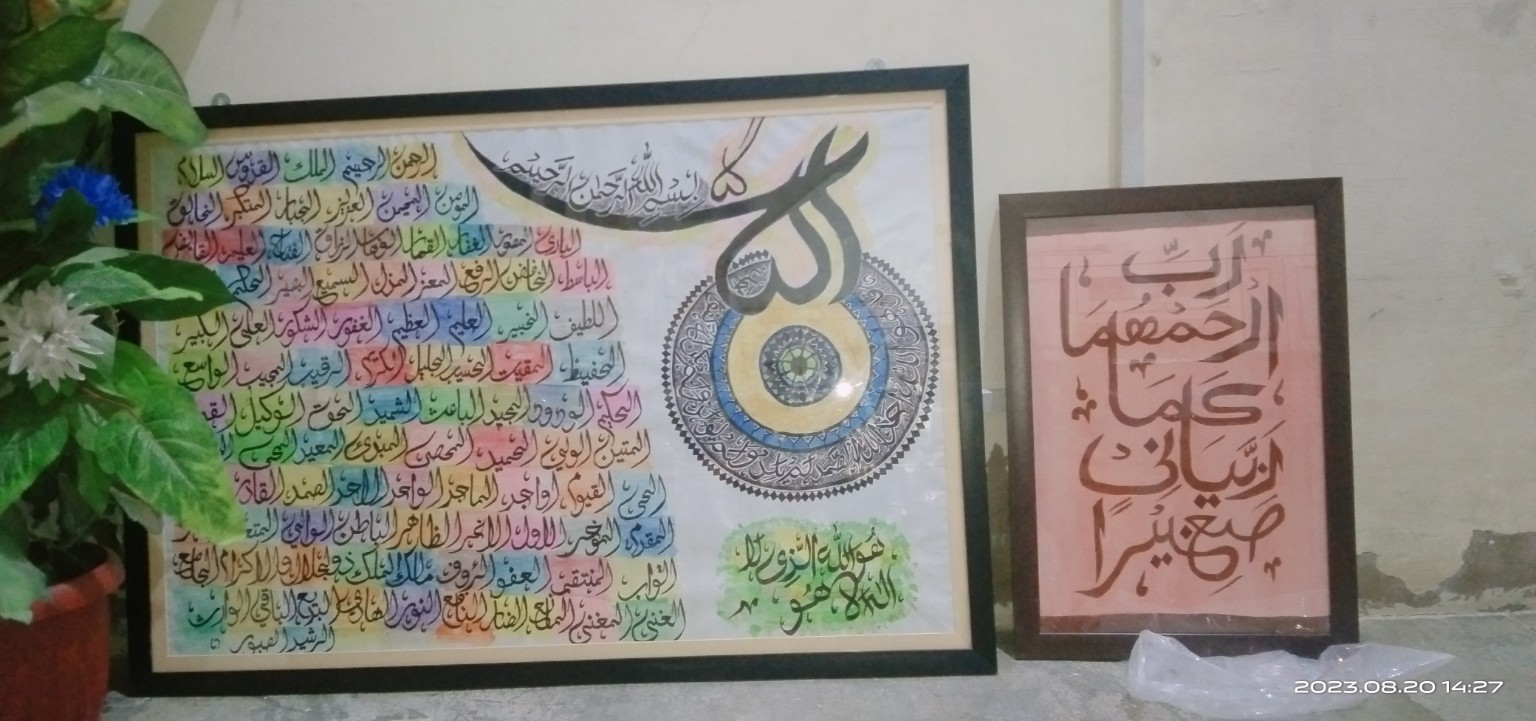 بسم الله الرحمن الرحيم
الله
الرحمن الرحيم الملك القدوس السلام
المؤمن المهيمن العزيز الجبار المتكبر الخالق
البارئ المصور الغفار القهار الوهاب الرزاق الفتاح العليم القابض
الباسط الخافض الرافع المعز المذل السميع البصير الحكيم
اللطيف الخبير الحليم العظيم الغفور الشكور العلي الكبير
الحفيظ المقيت الحسيب الجليل الكريم الرقيب المجيب الواسع
الحكيم الودود المجيد الباعث الشهيد الحق الوكيل
المتين الولي الحميد المحصي المبدئ المعيد المحيي
الحي القيوم الواجد الماجد الواحد الاحد الصمد القادر
المقدم المؤخر الاول الاخر الظاهر الباطن الوالي
التواب المنتقم العفو الرءوف مالك الملك ذوالجلال والاكرام
الغني المغني المانع الضار النافع النور الهادي البديع الباقي الوارث
الرشيد الصبور
هُوَ اللّٰهُ الَّذِي لَا
اِلٰهَ اِلَّا هُوَ
رَبِّ
ارْحَمْهُمَا
كَمَا
رَبَّيَانِي
صَغِيْرًا
2023.08.20 14:27